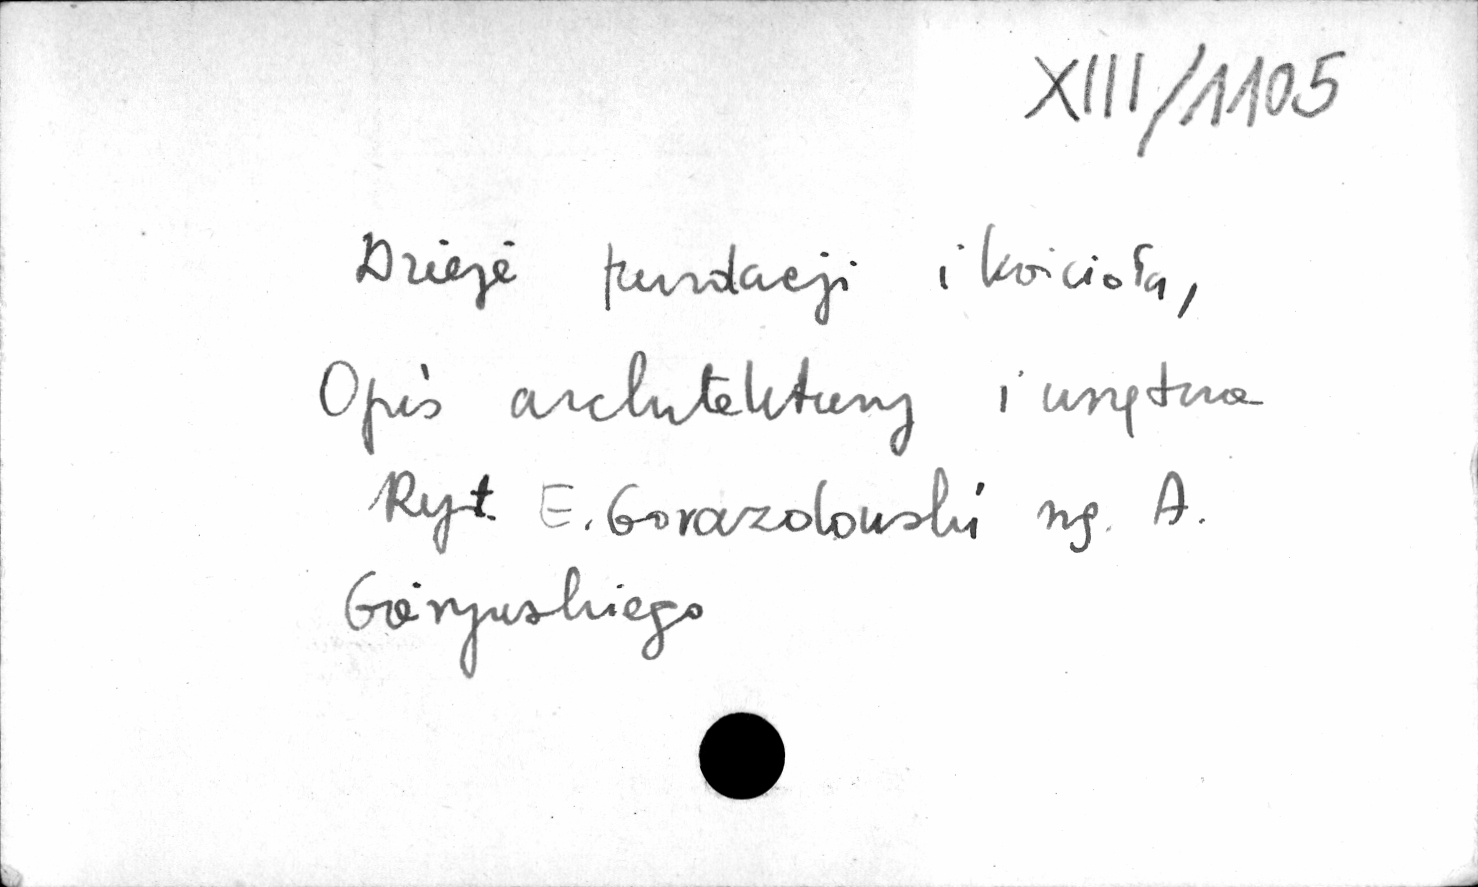 XIII/1105
Dzieje fundacji i kościoła,
Opis architektury i wnętrza
Ryt. E. Gorazdowski ryg. A.
Goryuskiego